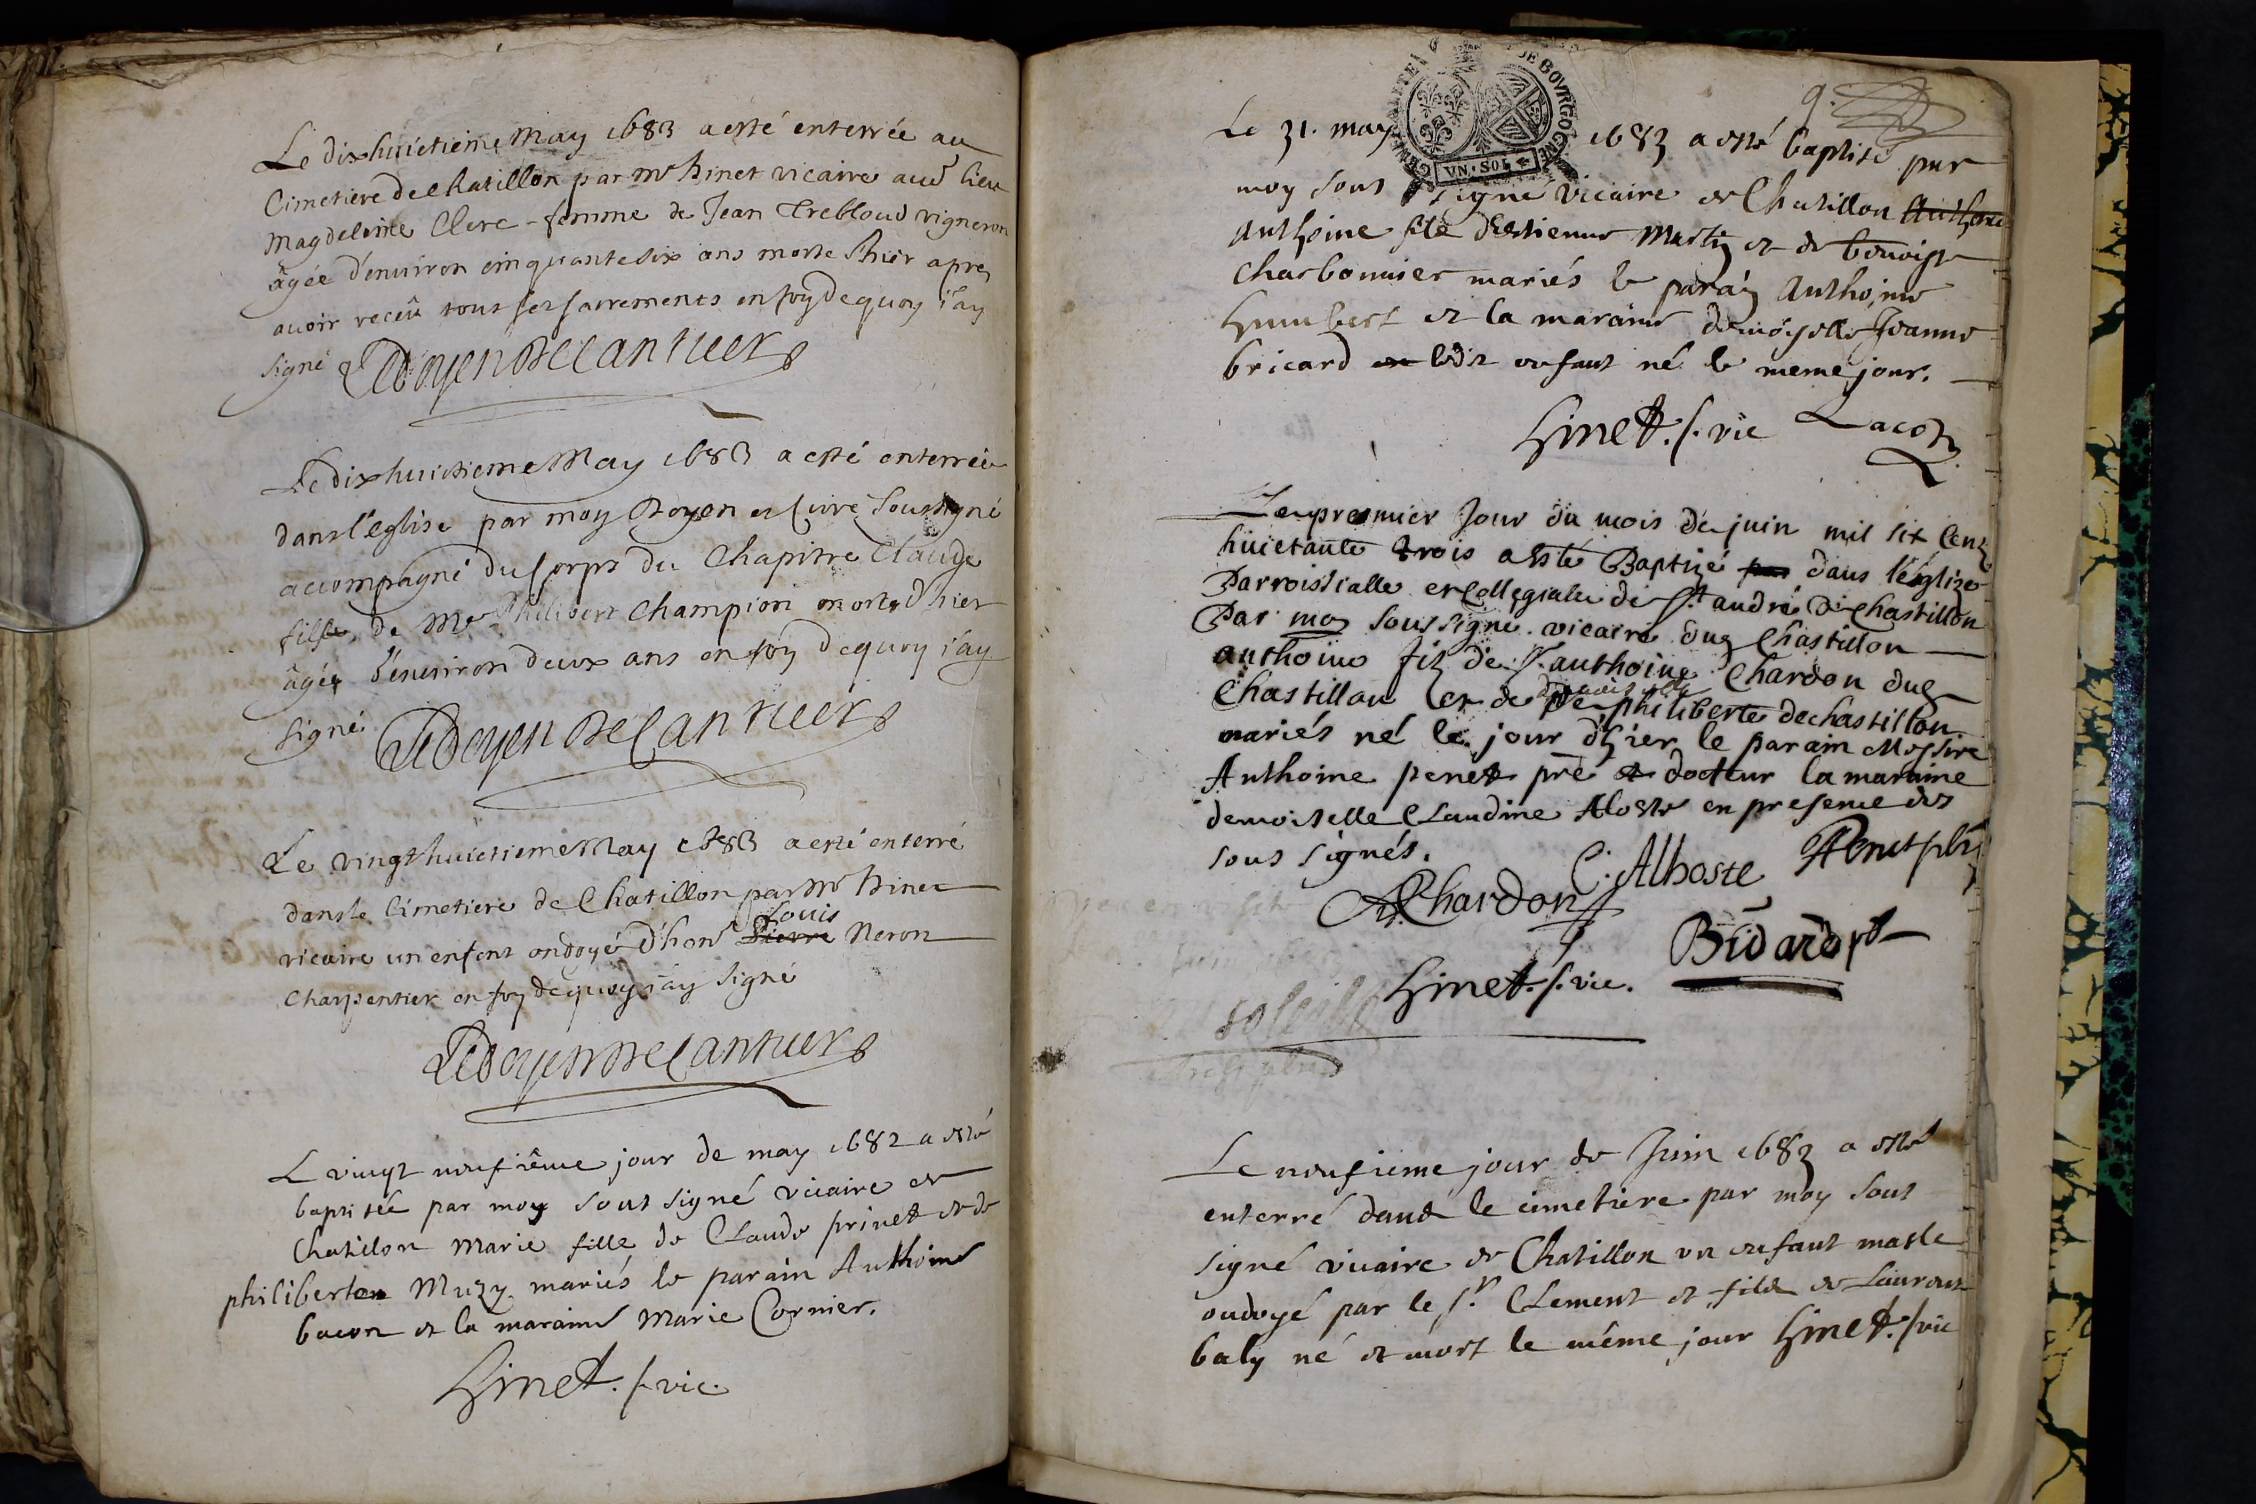 Le dixhuictieme May 1683 a esté enterrée au
Cimetiere de Chatillon par mr Hinet vicaire aud lieu
Magdeleine Clerc femme de Jean Trebloud vigneron
âgée d'environ cinquante six ans morte d'hier apres
avoir receu tous ses sacrements en foy dequoy i'ay
signé LeDoyen DeCantuer
Le dixhuictieme May 1683 a esté enterrée
dans l'eglise par moy Doyen et Curé soussigné
accompagné du Corps du Chapitre Claude
fille de Me Philibert Champion morte d'hier
âgée d'environ deux ans en foy dequoy i'ay
signé LeDoyen DeCantuer
Le vingthuictieme May 1683 a esté enterré
dans le Cimetiere de Chatillon par Mr Hinet
vicaire un enfent ondoyé d'hon Pierre Louis Neron
Charpentier en foy dequoy i'ay signé
LeDoyen DeCantuer
L vingt neufiême jour de may 1682 a esté
baptisée par moy sous signé vicaire de
Chatillon Marie fille de Claude prinet et de
philiberte Muzy mariés le parain Anthoine
bacon et la maraine Marie Cornier.
Hinet. s. vic.
9.
GENERALITE DE BOVRGOGNE
VN SOL
Le 31. may 1683 a esté baptisé par
moy sous signé vicaire de Chatillon Anthoine
Anthoine fils d'Estienne Martin et de benoiste
Charbonnier mariés le parain Anthoine
Humbert et la maraine demoiselle Jeanne
bricard ledit enfant né le meme jour.
Hinet. s. vic Lacoz
Le premier jour du mois de juin mil six Cent
huictante trois a esté Baptizé par dans l'églize
Parroissialle et Collegialle de St andré de Chastillon
Par moy soussigné vicaire dud Chastillon
anthoine fiz de Sr. anthoine Chardon dud
Chastillon et de demoiselle philiberte dechastillon
mariés né le jour d'hier le parain Messire
Anthoine penet pre et docteur la maraine
demoiselle Claudine Aloste en presence des
sous signés.
AChardon C. Alhoste APenet pbr
Hinet. s. vic. Bidard pt
Le neufieme jour de Juin 1683 a esté
enterré dans le cimetiere par moy sous
signé vicaire de Chatillon un enfant masle
ondoyé par le sr. Clement et fils de Laurent
baly né et mort le même jour Hinet. s. vic